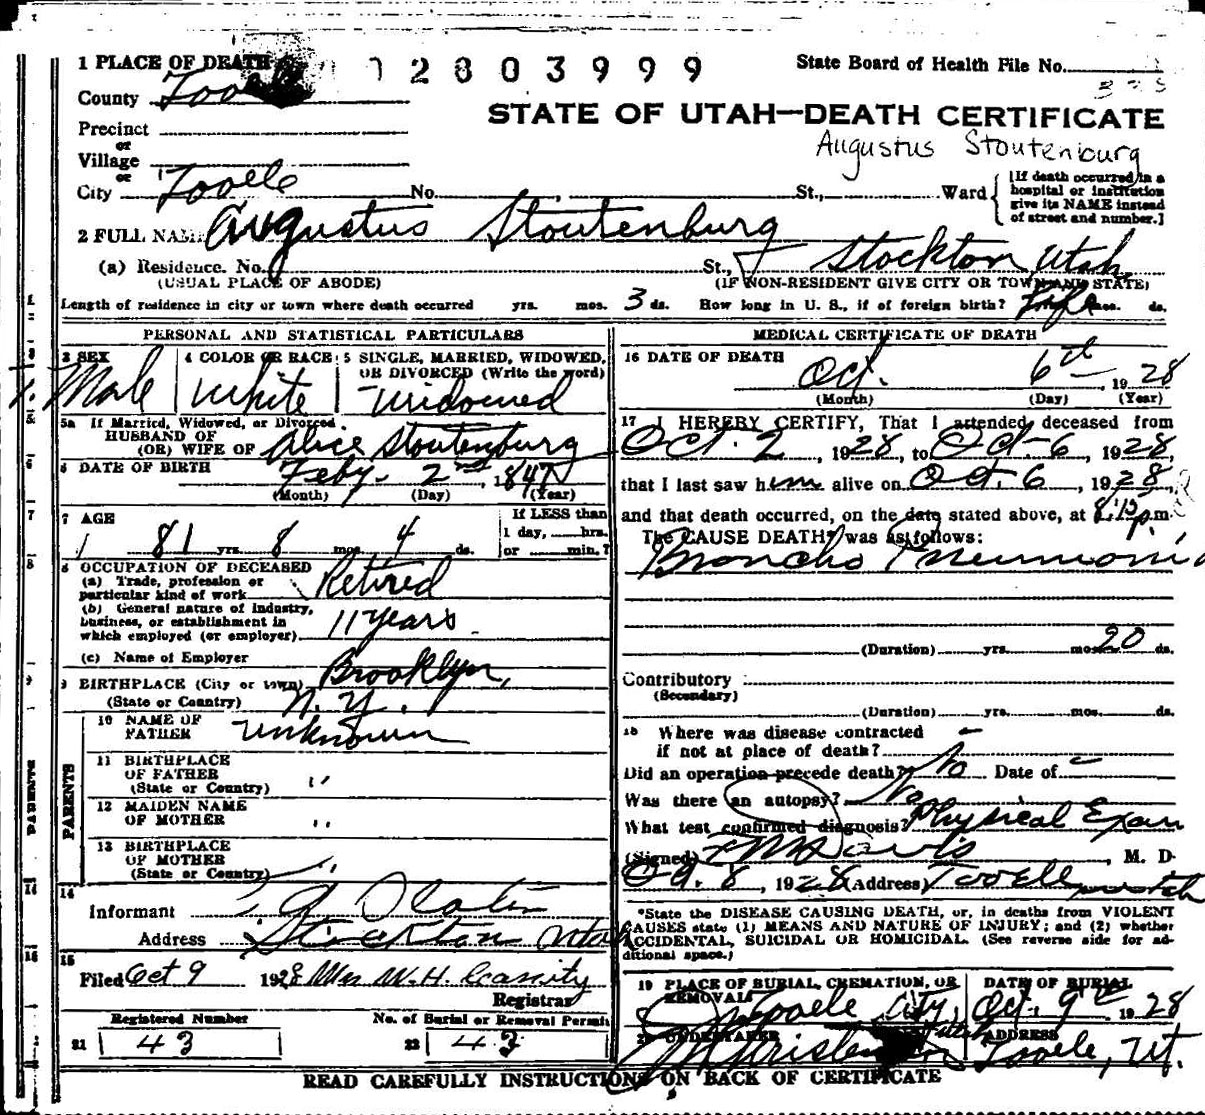 1 PLACE OF DEATH 2803999 State Board of Health File No.
County Tooele
STATE OF UTAH—DEATH CERTIFICATE
Precinct
or
Village
or
Augustus Stoutenburg
City Tooele No. St., Ward
[If death occurred in a hospital or institution give its NAME instead of street and number.]
2 FULL NAME Augustus Stoutenburg
(a) Residence. No. St., Stockton Utah
(USUAL PLACE OF ABODE) (IF NON-RESIDENT GIVE CITY OR TOWN AND STATE)
Length of residence in city or town where death occurred yrs. mos. 3 ds. How long in U. S., if of foreign birth? Life mos. ds.
PERSONAL AND STATISTICAL PARTICULARS
3 SEX
Male
4 COLOR OR RACE
White
5 SINGLE, MARRIED, WIDOWED, OR DIVORCED (Write the word)
Widowed
5a If Married, Widowed, or Divorced.
HUSBAND OF
(OR) WIFE OF Alice Stoutenburg
6 DATE OF BIRTH Feby. 2nd, 1847
(Month) (Day) (Year)
7 AGE
81 yrs. 8 mos. 4 ds.
If LESS than
1 day, hrs.
or min.?
8 OCCUPATION OF DECEASED
(a) Trade, profession or
particular kind of work Retired
(b) General nature of industry,
business, or establishment in
which employed (or employer) 11 years
(c) Name of Employer
9 BIRTHPLACE (City or town) Brooklyn,
(State or Country) N.Y.
PARENTS
10 NAME OF
FATHER Unknown
11 BIRTHPLACE
OF FATHER
(State or Country) "
12 MAIDEN NAME
OF MOTHER "
13 BIRTHPLACE
OF MOTHER
(State or Country) "
14
Informant
Address Stockton Utah
15
Filed Oct 9 1928 Mrs W. H. Cassity
Registrar
Registered Number
21 43
No. of Burial or Removal Permit
22 43
MEDICAL CERTIFICATE OF DEATH
16 DATE OF DEATH
Oct. 6th, 1928
(Month) (Day) (Year)
17 I HEREBY CERTIFY, That I attended deceased from
Oct. 2, 1928, to Oct-6, 1928,
that I last saw him alive on Oct. 6, 1928,
and that death occurred, on the date stated above, at 8:15 p.m.
The CAUSE DEATH* was as follows:
Broncho Pneumonia
(Duration) yrs. mos. 20 ds.
Contributory
(Secondary)
(Duration) yrs. mos. ds.
18 Where was disease contracted
if not at place of death?
Did an operation precede death? No Date of
Was there an autopsy? No
What test confirmed diagnosis? Physical Exam
(Signed) Davis, M. D.
Oct. 8, 1928 (Address) Tooele Utah
*State the DISEASE CAUSING DEATH, or, in deaths from VIOLENT
CAUSES state (1) MEANS AND NATURE OF INJURY; and (2) whether
ACCIDENTAL, SUICIDAL OR HOMICIDAL. (See reverse side for additional space.)
19 PLACE OF BURIAL, CREMATION, OR
REMOVAL
Tooele City, Utah
DATE OF BURIAL
Oct. 9th 1928
UNDERTAKER
ADDRESS
Tooele, Ut.
READ CAREFULLY INSTRUCTIONS ON BACK OF CERTIFICATE